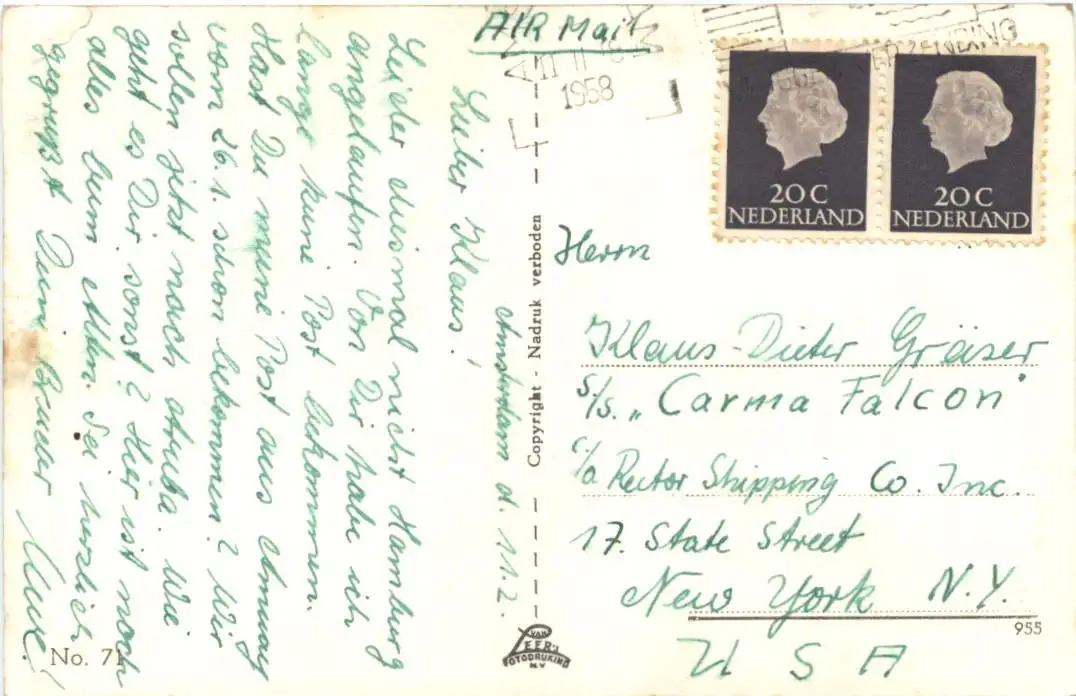 AIR Mail
11 II
1958
VERZENDING
20 C
NEDERLAND
20 C
NEDERLAND
Amsterdam d. 11.2.
Lieber Klaus!
Leider diesmal nicht Hamburg
angelaufen. Von Dir habe ich
lange keine Post bekommen.
Hast Du meine Post aus
vom 26.1. schon bekommen? Wir
sollen jetzt nach Aruba. Wie
geht es Dir sonst? Hier ist noch
alles beim Alten. Sei herzlich
gegrüßt Dein Bruder Uwe!
No. 71
Copyright - Nadruk verboden
VAN
LEER'S
FOTODRUKIND.
N.V.
Herrn
Klaus-Dieter Gräser
S/s. „Carma Falcon"
c/o Rector Shipping Co. Inc.
17. State Street
New York N.Y.
955
U S A